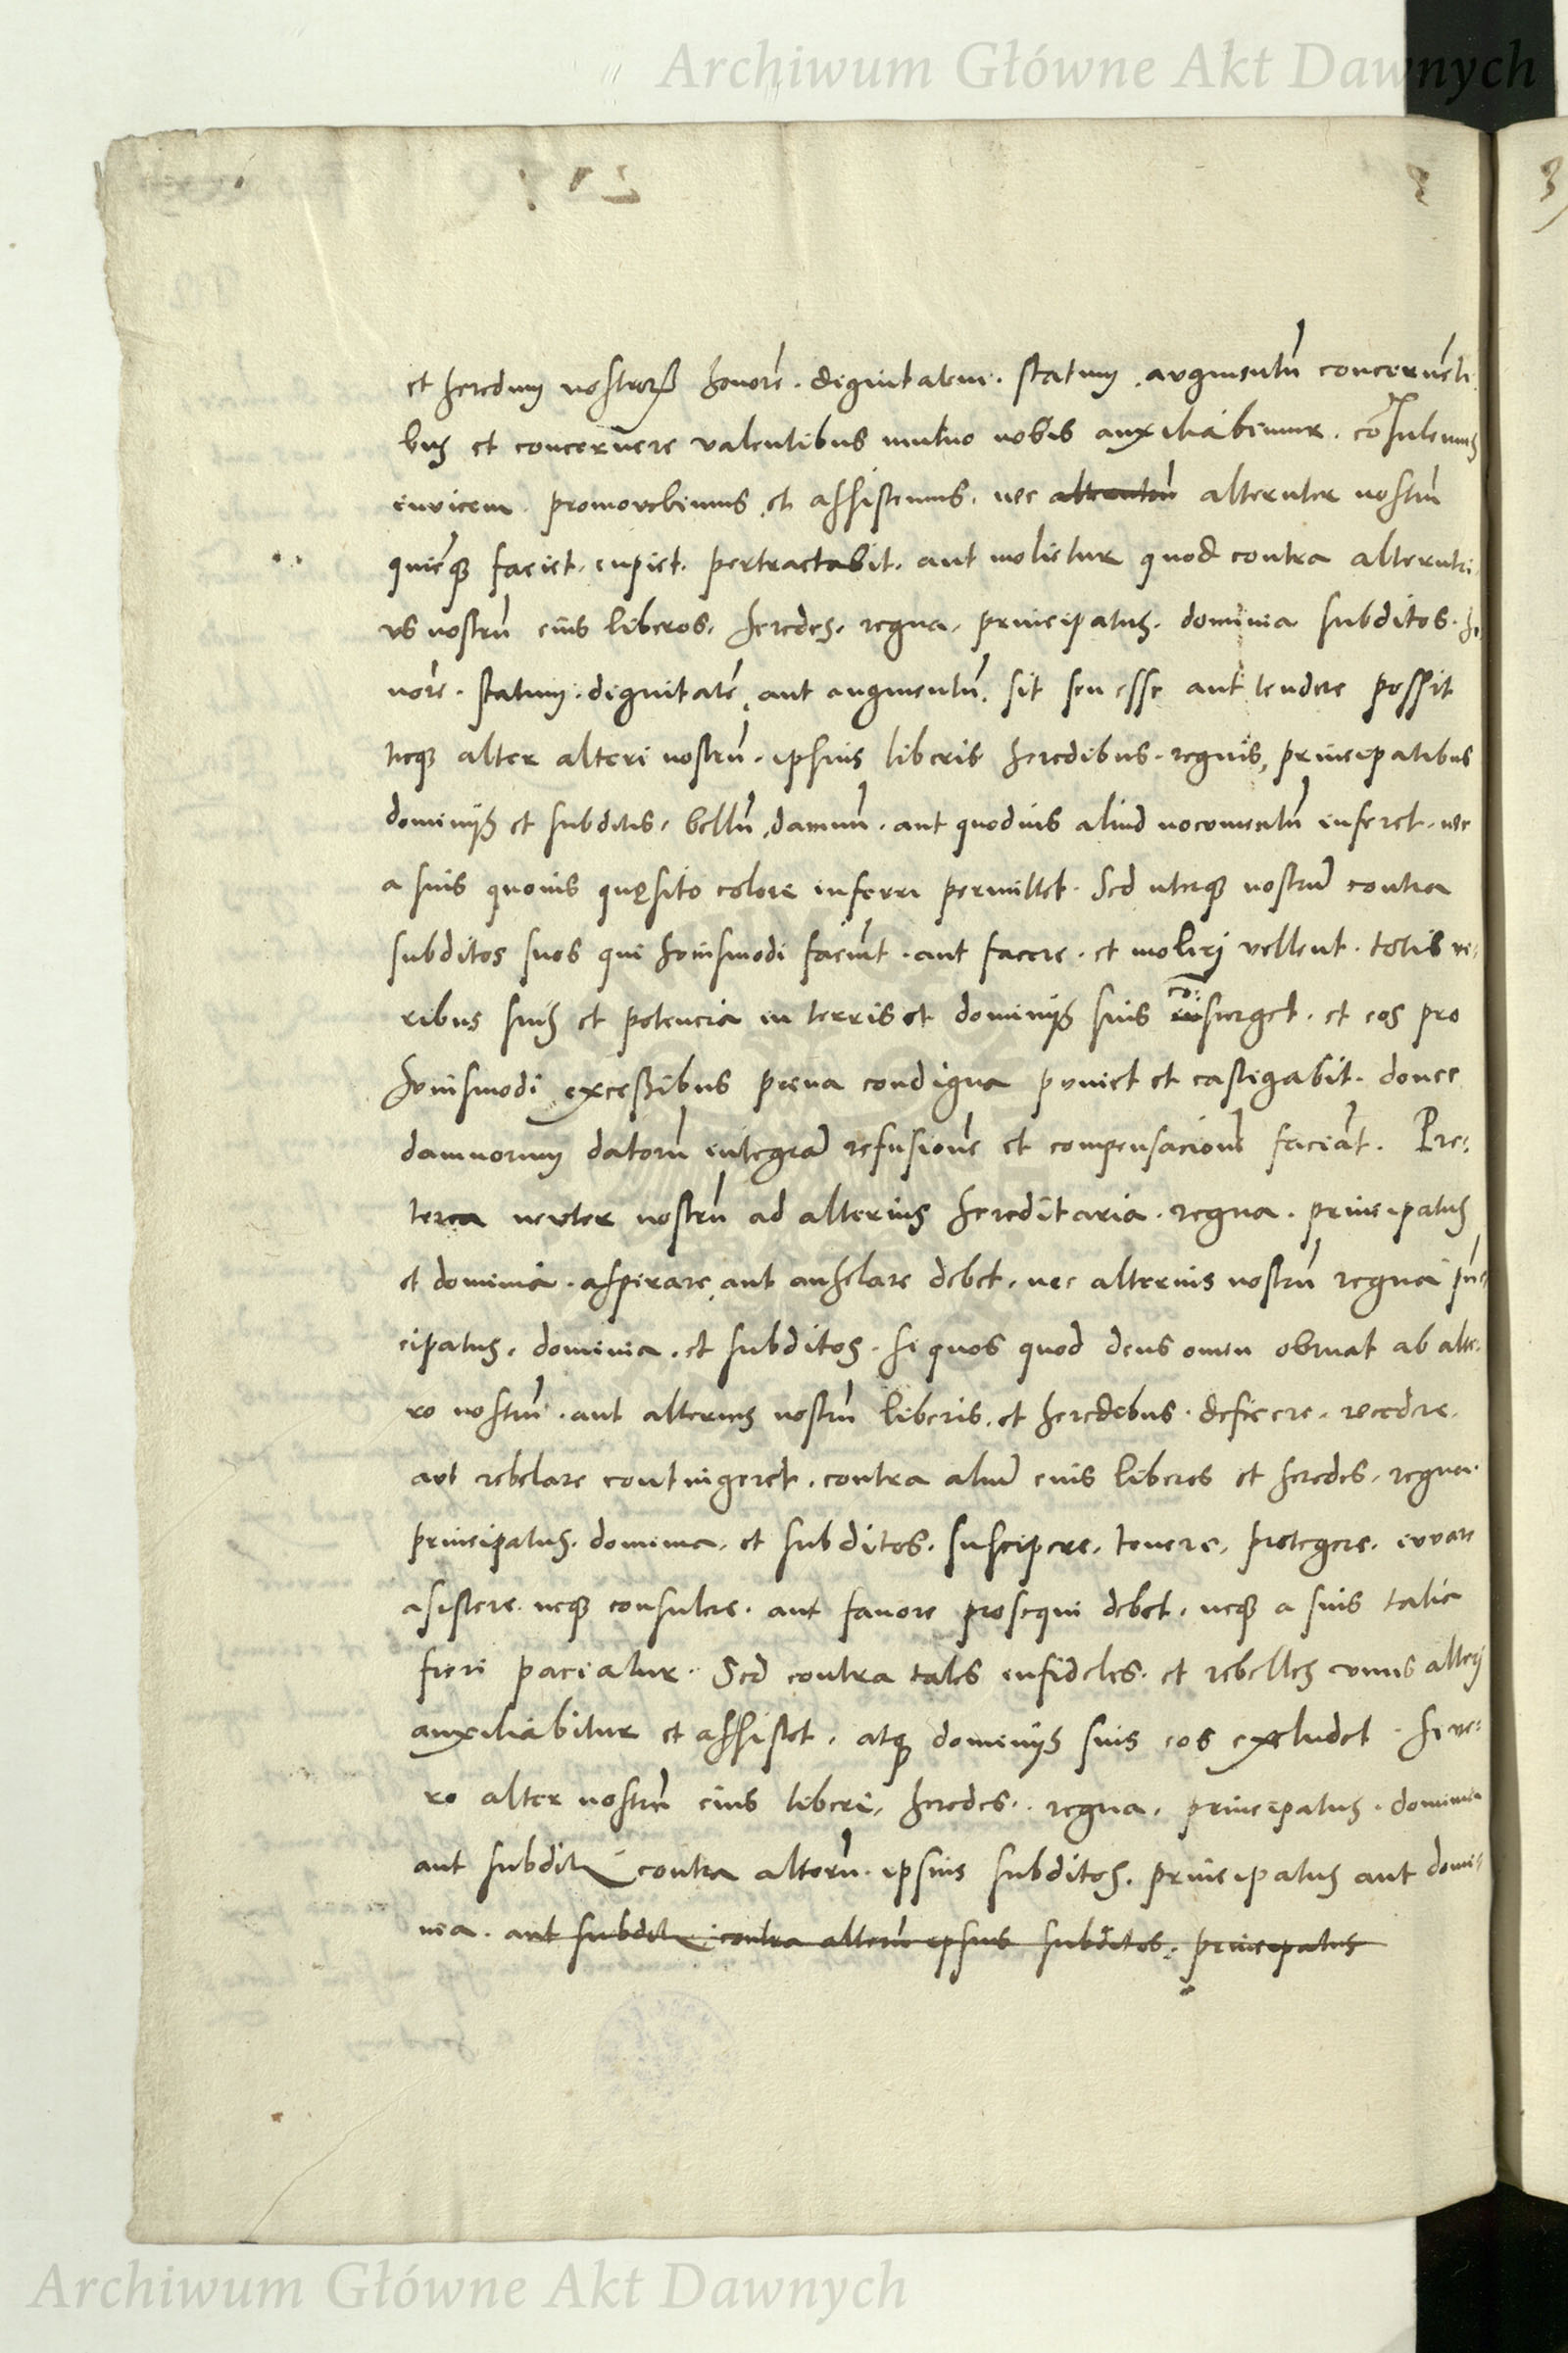 Archiwum Główne Akt Dawnych
et heredum nostrorꝝ honorē. dignitatem. statum. augmentū concernēti
bus et concernere valentibus mutuo nobis auxiliabimur. cōsulemus
invicem. promovebimus et assistemus. nec alterutrū alteruter nostrū
quicq̃ faciet. cupiet. pertractabit. aut molietur quod contra alterutri
us nostrū eius liberos. heredes. regna. principatus. dominia subditos. ho
norē. statum. dignitatē aut augmentū. sit seu esse aut tendere possit
neq̃ alter alteri nostrū. ipsius liberis heredibus. regnis, principatibus
dominijs et subditis. bellū, damnū. aut quodvis aliud nocumentū inferet. nec
a suis quovis quęsito colore inferri permittet. Sed uterq̃ nostrū contra
subditos suos qui huiusmodi faciūt. aut facere. et moliri vellent. totis vi:
ribus suis et potencia in terris et dominijs suis co: insurget. et eos pro
huiusmodi excessibus pena condigna puniet et castigabit. donec
damnorum datorū integrā refusionē et compensacionē faciāt. Pre:
terea neuter nostrū ad alterius hereditaria. regna. principatus
et dominia. aspirare, aut anhelare debet. nec alterius nostrū regna prin
cipatus. dominia. et subditos. si quos quod deus omen obruat ab alte:
ro nostrū. aut alterius nostrū liberis. et heredibus. deficere. recedere.
aut rebelare contingeret. contra aliū eius liberos et heredes. regna.
principatus. dominia. et subditos. suscipere. tenere, protegere. iuvare
asistere. neq̃ consulere. aut favore prosequi debet. neq̃ a suis talia
fieri paciatur. Sed contra tales infideles. et rebelles unus alteri
auxiliabitur et assistet. atq̃ dominijs suis eos excludet. si ve:
ro alter nostrū eius liberi, heredes. regna. principatus. dominia
aut subditi contra alterū. ipsius subditos. principatus aut domi:
nia. aut subditi contra alterū ipsius subditos. principatus
Archiwum Główne Akt Dawnych